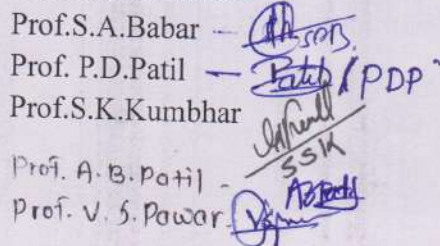 Prof.S.A.Babar - SAB.
Prof. P.D.Patil - Patil / PDP
Prof.S.K.Kumbhar
SSK
Prof. A.B.Patil - ABPatil
Prof. V.S.Pawar